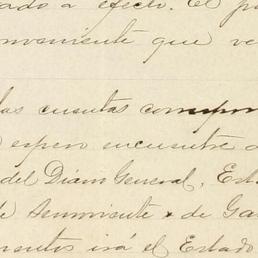 ado a efecto. El p
onveniente que ve
las cuentas correspon
espero encuentre
del Diario General, Est
de Semoviente & de Ga
irá el Estado